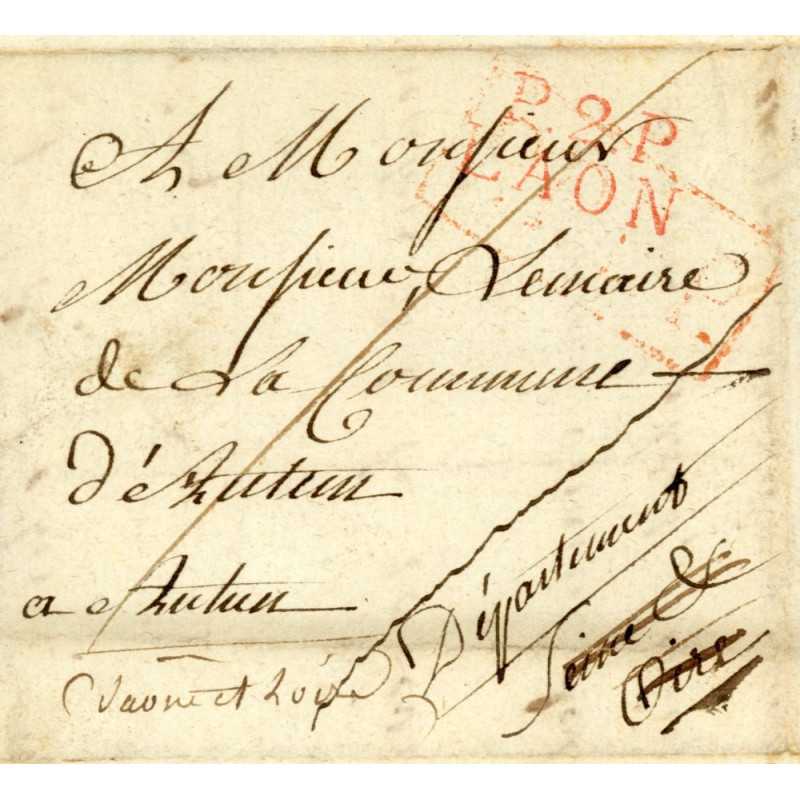 P. 2. P.
LAON
A Monsieur
Monsieur, Lemaire
de La Commune
d'éAutun
a Autun
Département
Seine &
Oise
Saone et Loire